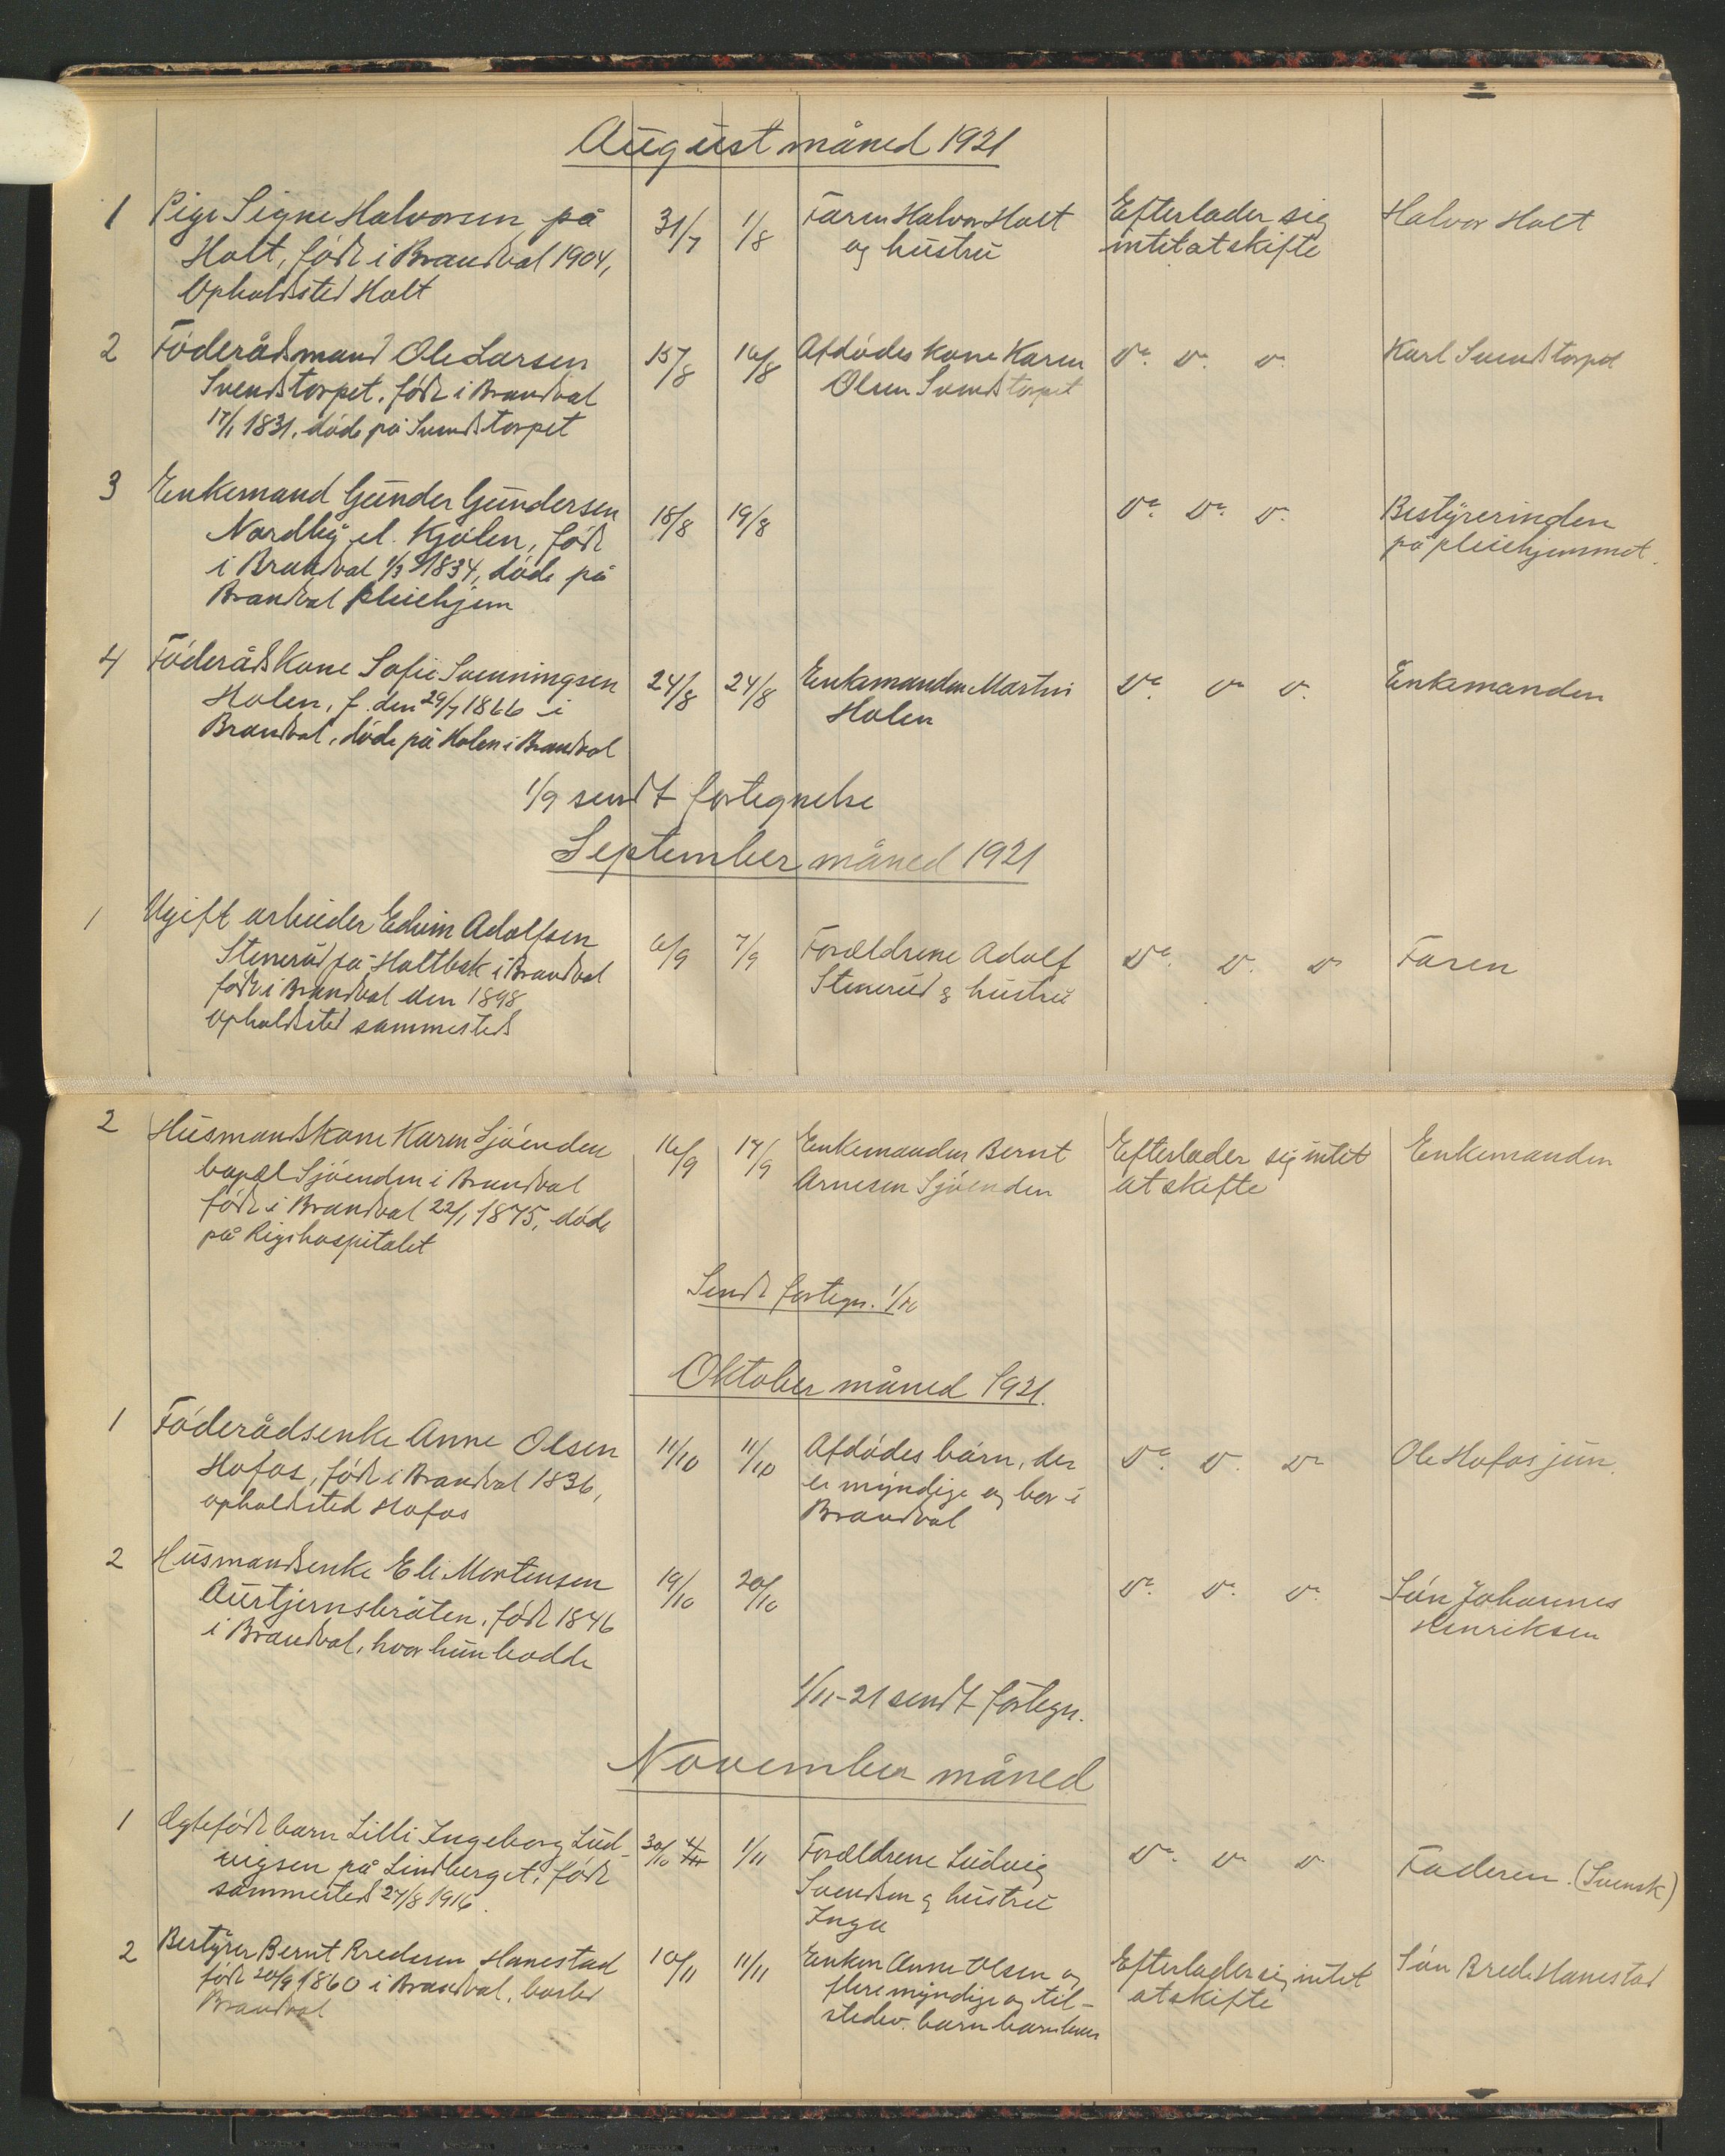 August måned 1921
1 Pige Signe Halvorsen på 31/7 1/8 Faren Halvor Holt Efterlader sig Halvor Holt
Holt, født i Brandval 1904, og hustru intet at skifte
Opholdssted Holt
2 Föderådsmand Ole Larsen 15/8 16/8 Afdödes kone Karen Do. Do. Do. Karl Svendstorpet
Svendstorpet, født i Brandval Olsen Svendstorpet
17/1 1831, döde på Svendstorpet
3 Enkemand Gunder Gundersen 18/8 19/8 Do. Do. Do. Bestyrerinden
Nordby el. Kjölen, født på pleiehjemmet.
i Brandval 1/3 1834, döde på
Brandval pleiehjem
4 Föderådskone Sofie Svenningsen 24/8 24/8 Enkemanden Martin Do. Do. Do. Enkemanden
Holen, f. den 29/7 1866 i Holen
Brandval, döde på Holen i Brandval
1/9 sendt fortegnelse
September måned 1921
1 Ugift arbeider Edvin Adolfsen 6/9 7/9 Forældrene Adolf Do. Do. Do. Faren
Stenerud på Holtbak i Brandval Stenerud & hustru
født i Brandval den 1898
opholdssted sammesteds
2 Husmandskone Karen Sjöenden 16/9 17/9 Enkemanden Bernt Efterlader sig intet Enkemanden
bopæl Sjöenden i Brandval Arnesen Sjöenden at skifte
født i Brandval 22/1 1875, döde
på Rigshospitalet
Sendt fortegn. 1/10
Oktober måned 1921.
1 Föderådsenke Anne Olsen 11/10 11/10 Afdödes börn, der Do. Do. Do. Ole Hofos jun.
Hofos, født i Brandval 1836, er myndige og bor i
opholdssted Hofos Brandval
2 Husmandsenke Eli Mortensen 19/10 20/10 Do. Do. Do. Sön Johannes
Aurtjernsbråten, født 1846 Henriksen
i Brandval, hvor hun bodde
1/11-21 sendt fortegn.
November måned
1 Ægtefödt barn Lilli Ingeborg Lud- 30/10 1/11 Forældrene Ludvig Do. Do. Do. Faderen. (Svensk)
vigsen på Lindberget, født Svendsen & hustru
sammested 27/8 1916. Inga
2 Bestyrer Bernt Bredesen Hanestad 10/11 11/11 Enken Anne Olsen og Efterlader sig intet Sön Brede Hanestad
født 20/9 1860 i Brandval, bosted flere myndige og til- at skifte
Brandval stedev. barn